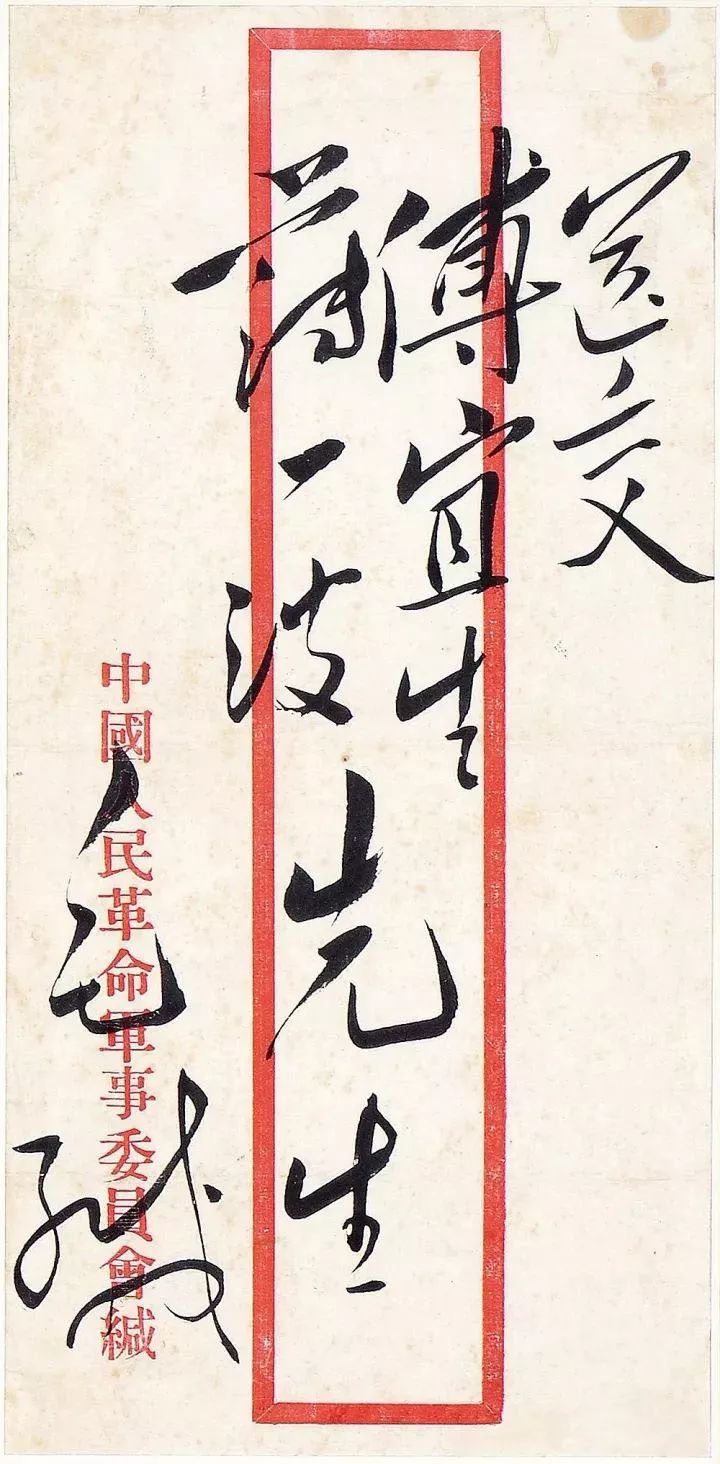 送交
傅宜生
薄一波先生
毛緘
中國人民革命軍事委員會緘